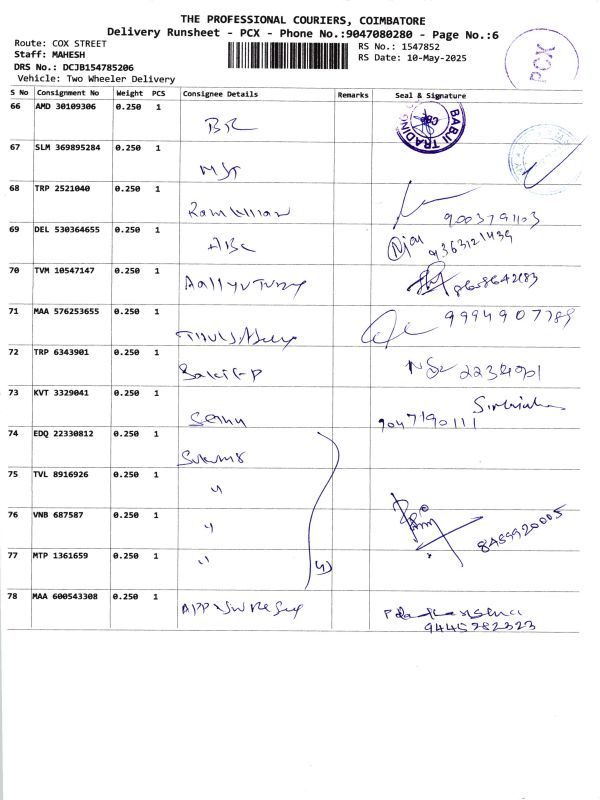 THE PROFESSIONAL COURIERS, COIMBATORE
Delivery Runsheet - PCX - Phone No.:9047080280 - Page No.:6
Route: COX STREET
Staff: MAHESH
DRS No.: DCJB154785206
Vehicle: Two Wheeler Delivery
RS No.: 1547852
RS Date: 10-May-2025
PCX
S No Consignment No Weight PCS Consignee Details Remarks Seal & Signature
66 AMD 30109306 0.250 1
BABJI TRADING CO
67 SLM 369895284 0.250 1
MST
68 TRP 2521040 0.250 1
9003791103
69 DEL 530364655 0.250 1
ABC
9363121439
70 TVM 10547147 0.250 1
71 MAA 576253655 0.250 1
9994907789
72 TRP 6343901 0.250 1
73 KVT 3329041 0.250 1
9047190111
74 EDQ 22330812 0.250 1
75 TVL 8916926 0.250 1
"
76 VNB 687587 0.250 1
"
8489920005
77 MTP 1361659 0.250 1
"
4)
78 MAA 600543308 0.250 1
9445282323